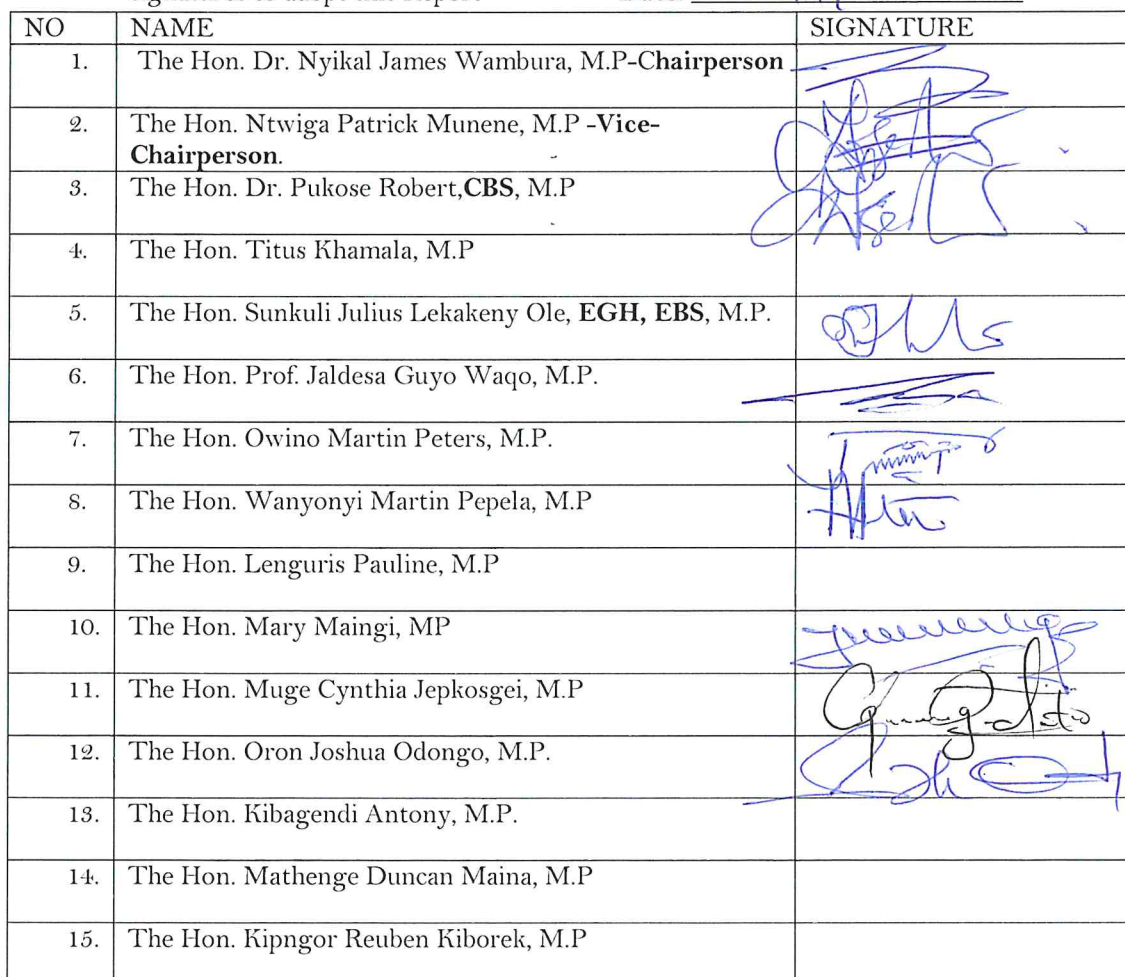 NO NAME SIGNATURE
1. The Hon. Dr. Nyikal James Wambura, M.P-Chairperson
2. The Hon. Ntwiga Patrick Munene, M.P -Vice-
Chairperson.
3. The Hon. Dr. Pukose Robert,CBS, M.P
4. The Hon. Titus Khamala, M.P
5. The Hon. Sunkuli Julius Lekakeny Ole, EGH, EBS, M.P.
6. The Hon. Prof. Jaldesa Guyo Waqo, M.P.
7. The Hon. Owino Martin Peters, M.P.
8. The Hon. Wanyonyi Martin Pepela, M.P
9. The Hon. Lenguris Pauline, M.P
10. The Hon. Mary Maingi, MP
11. The Hon. Muge Cynthia Jepkosgei, M.P
12. The Hon. Oron Joshua Odongo, M.P.
13. The Hon. Kibagendi Antony, M.P.
14. The Hon. Mathenge Duncan Maina, M.P
15. The Hon. Kipngor Reuben Kiborek, M.P